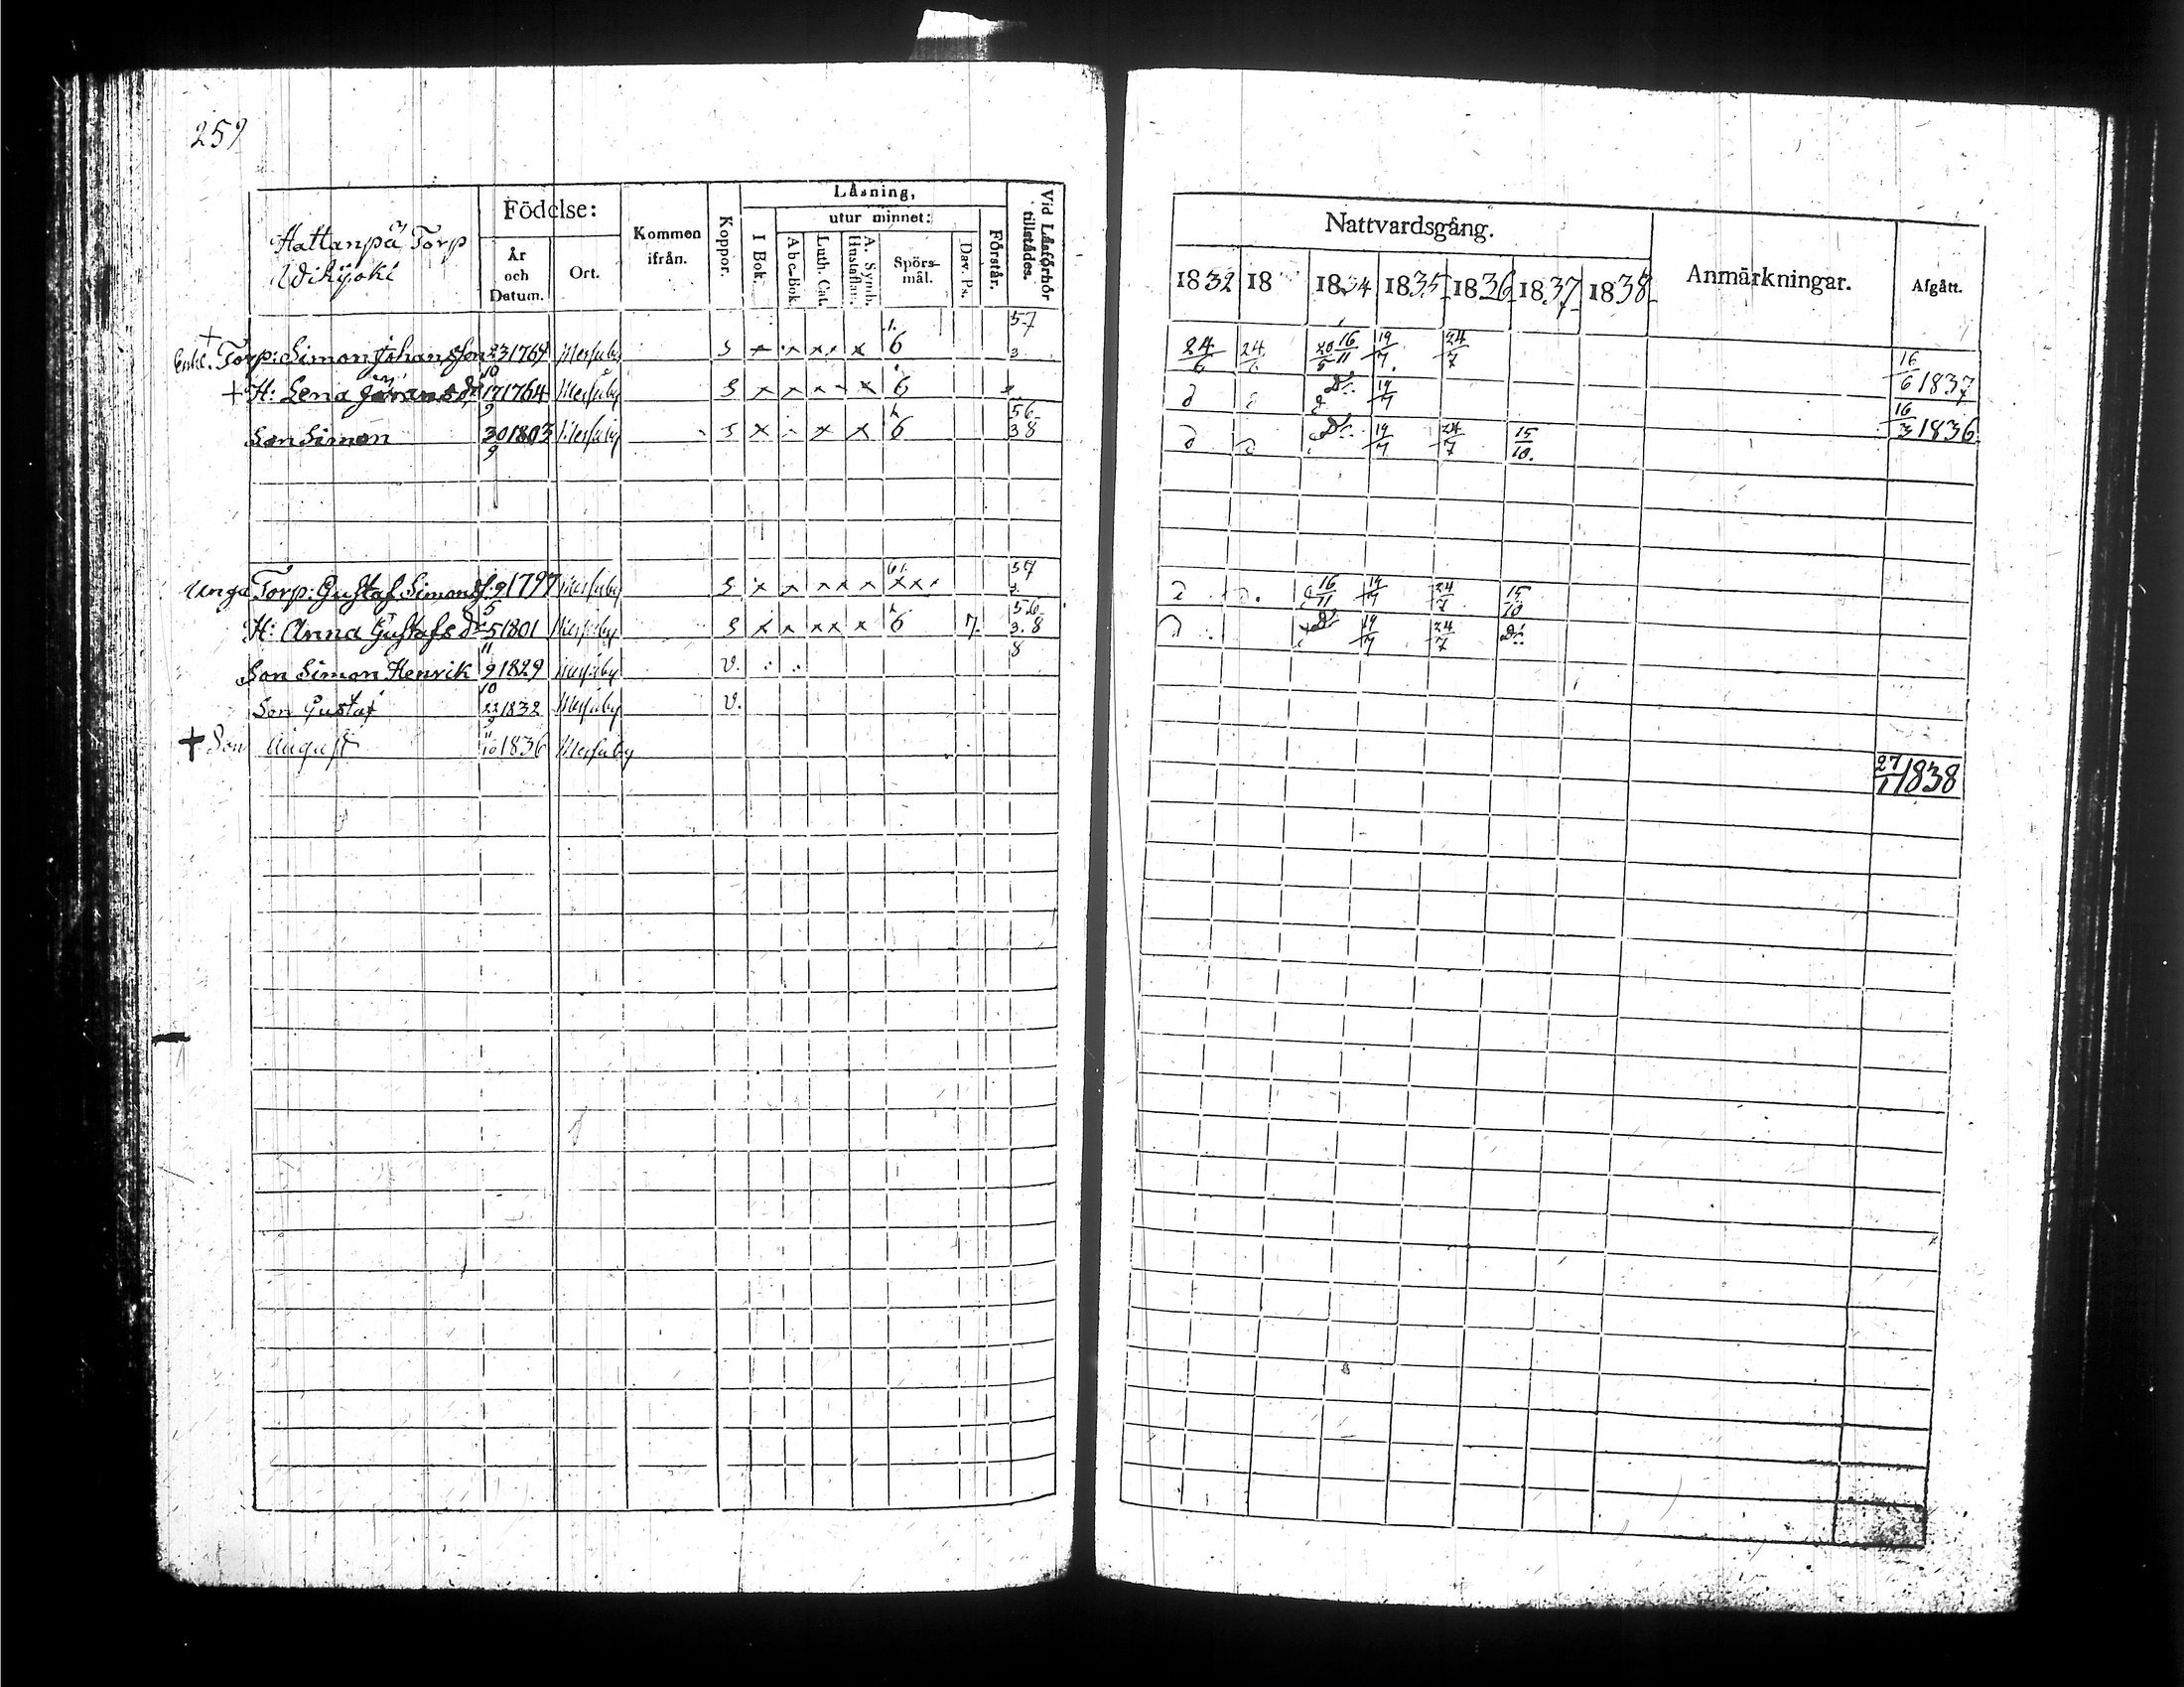 259
Hattanpää Torp
Wikijoki
Födelse:
År och Datum.
Ort.
Kommen ifrån.
Koppor.
Läsning,
I Bok.
utur minnet:
Abc-Bok.
Luth. Cat.
A. Symb. Hustaflan.
Spörsmål.
Dav. Ps.
Förstår.
Vid Läsförhör tillstädes.
Nattvardsgång.
1832 18 1834 1835 1836 1837 1838
Anmärkningar.
Afgått.
+ Enkl. Torp: Simon Johansson 23/10 1764 s x x x x 6 57 3 24/6 24 20/5 16/11 19/7 24/7 16/6 1837
+ H: Lena 17/9 1764 s x x x x x 6 19/7 16/3 1836
Son Simon 30/9 1803 s x x x 6 56 38 19/7 24/7 15/10
Unga Torp: Gustaf Simonss. 9/5 1797 s x x x x x x x x 57 3 16/11 19/7 24/7 15/10
H: Anna Gustafsdr 5/11 1801 s x x x x x 6 7. 56 3.8 8 19/7 24/7 Do:
Son Simon Henrik 9/10 1829 v.
Son Gustaf 22/9 1832 v.
+ Son August 11/10 1836 27/1 1838